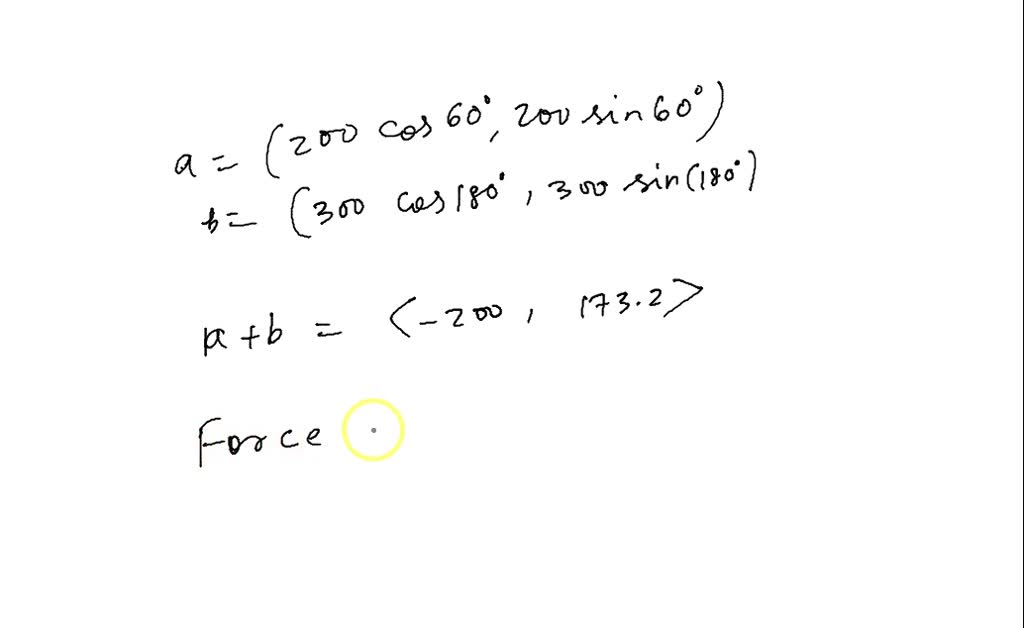 a = (200 cos 60°, 200 sin 60°)
b = (300 cos 180°, 300 sin(180°)
a + b = <-200, 173.2>
Force